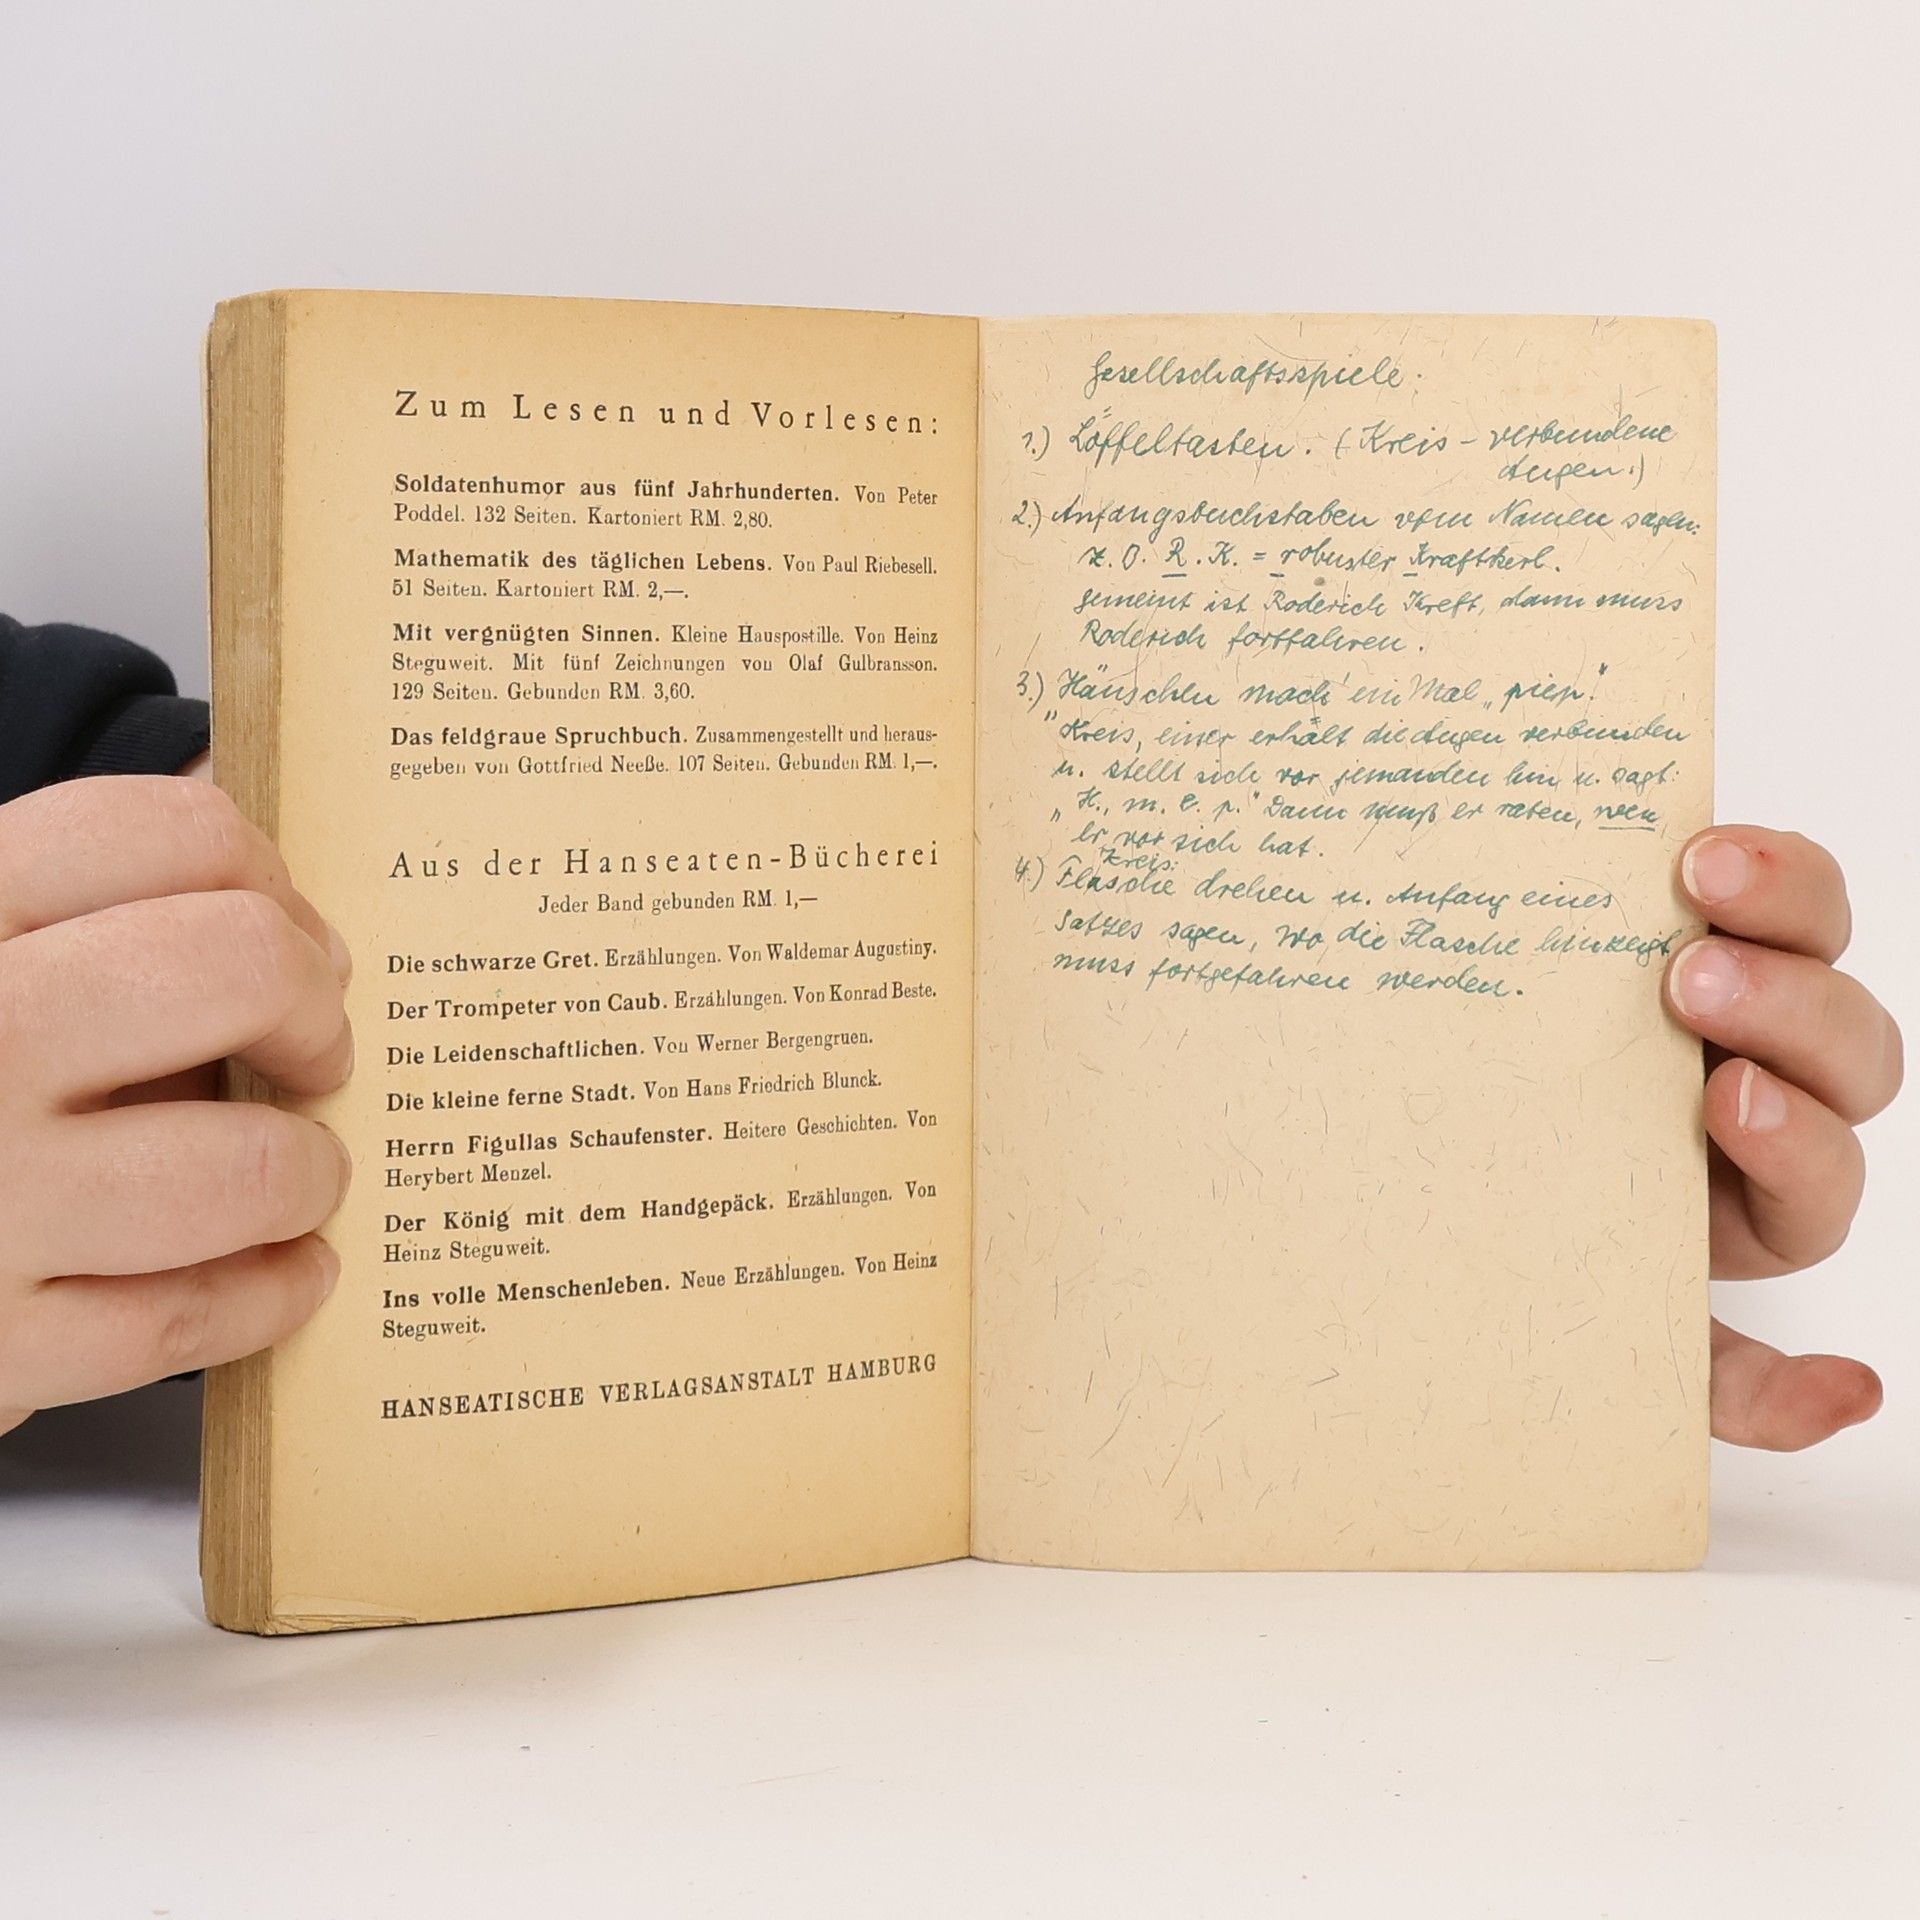 Zum Lesen und Vorlesen:
Soldatenhumor aus fünf Jahrhunderten. Von Peter
Poddel. 132 Seiten. Kartoniert RM. 2,80.
Mathematik des täglichen Lebens. Von Paul Riebesell.
51 Seiten. Kartoniert RM. 2,—.
Mit vergnügten Sinnen. Kleine Hauspostille. Von Heinz
Steguweit. Mit fünf Zeichnungen von Olaf Gulbransson.
129 Seiten. Gebunden RM. 3,60.
Das feldgraue Spruchbuch. Zusammengestellt und heraus-
gegeben von Gottfried Neeße. 107 Seiten. Gebunden RM. 1,—.
Aus der Hanseaten-Bücherei
Jeder Band gebunden RM. 1,—
Die schwarze Gret. Erzählungen. Von Waldemar Augustiny.
Der Trompeter von Caub. Erzählungen. Von Konrad Beste.
Die Leidenschaftlichen. Von Werner Bergengruen.
Die kleine ferne Stadt. Von Hans Friedrich Blunck.
Herrn Figullas Schaufenster. Heitere Geschichten. Von
Herybert Menzel.
Der König mit dem Handgepäck. Erzählungen. Von
Heinz Steguweit.
Ins volle Menschenleben. Neue Erzählungen. Von Heinz
Steguweit.
HANSEATISCHE VERLAGSANSTALT HAMBURG
Gesellschaftsspiele:
1.) Löffeltasten. (Kreis – verbundene
Augen.)
2.) Anfangsbuchstaben vom Namen sagen:
z. B. R. K. = robuster Kraftkerl.
gemeint ist Roderich Kreft, dann muss
Roderich fortfahren.
3.) Hänschen mach' ein Mal „piep."
Kreis, einer erhält die Augen verbunden
u. stellt sich vor jemanden hin u. sagt:
„H., m. e. p." Dann muß er raten, wen
er vor sich hat.
Kreis:
4.) Flasche drehen u. Anfang eines
Satzes sagen, wo die Flasche hinzeigt
muss fortgefahren werden.